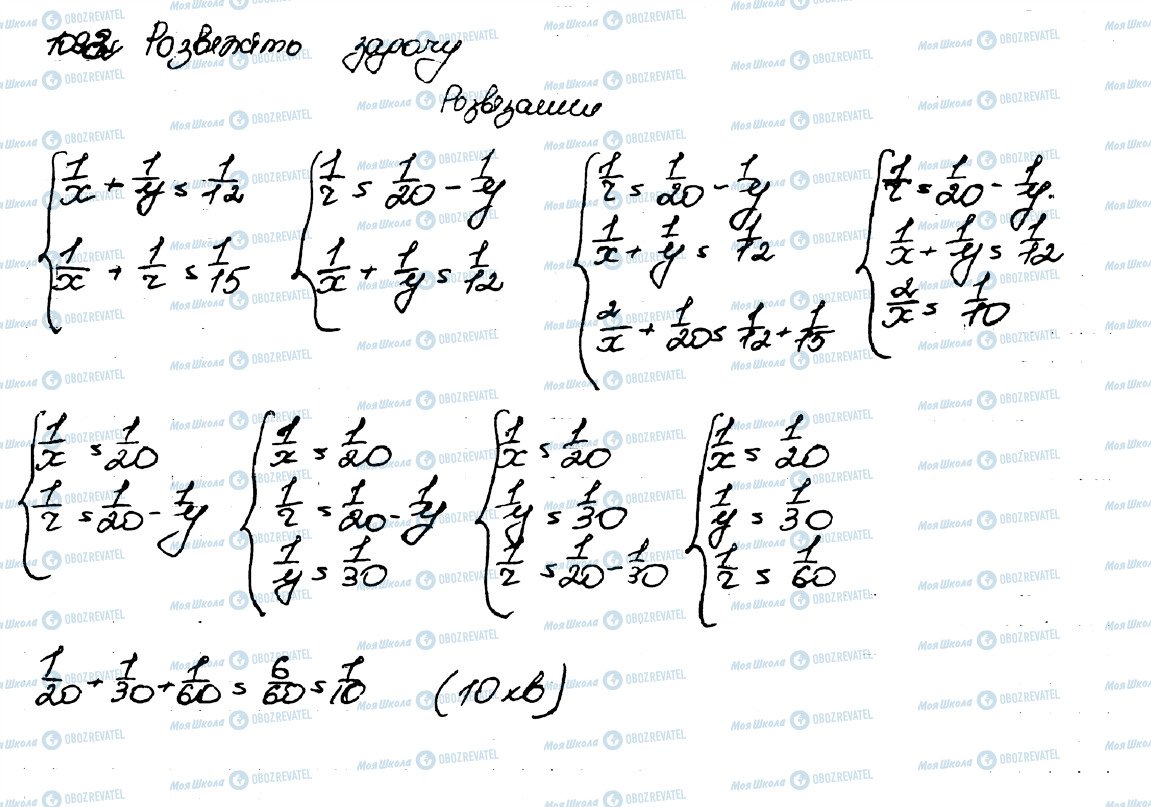 Розвяжіть задачу
Розвязання
{ 1/x + 1/y = 1/12
1/x + 1/z = 1/15
{ 1/z = 1/20 - 1/y
1/x + 1/y = 1/12
{ 1/z = 1/20 - 1/y
1/x + 1/y = 1/12
2/x + 1/20 = 1/12 + 1/15
{ 1/z = 1/20 - 1/y.
1/x + 1/y = 1/12
2/x = 1/10
{ 1/x = 1/20
1/z = 1/20 - 1/y
{ 1/x = 1/20
1/z = 1/20 - 1/y
1/y = 1/30
{ 1/x = 1/20
1/y = 1/30
1/z = 1/20 - 1/30
{ 1/x = 1/20
1/y = 1/30
1/z = 1/60
1/20 + 1/30 + 1/60 = 6/60 = 1/10 (10 хв)
Моя Школа OBOZREVATEL